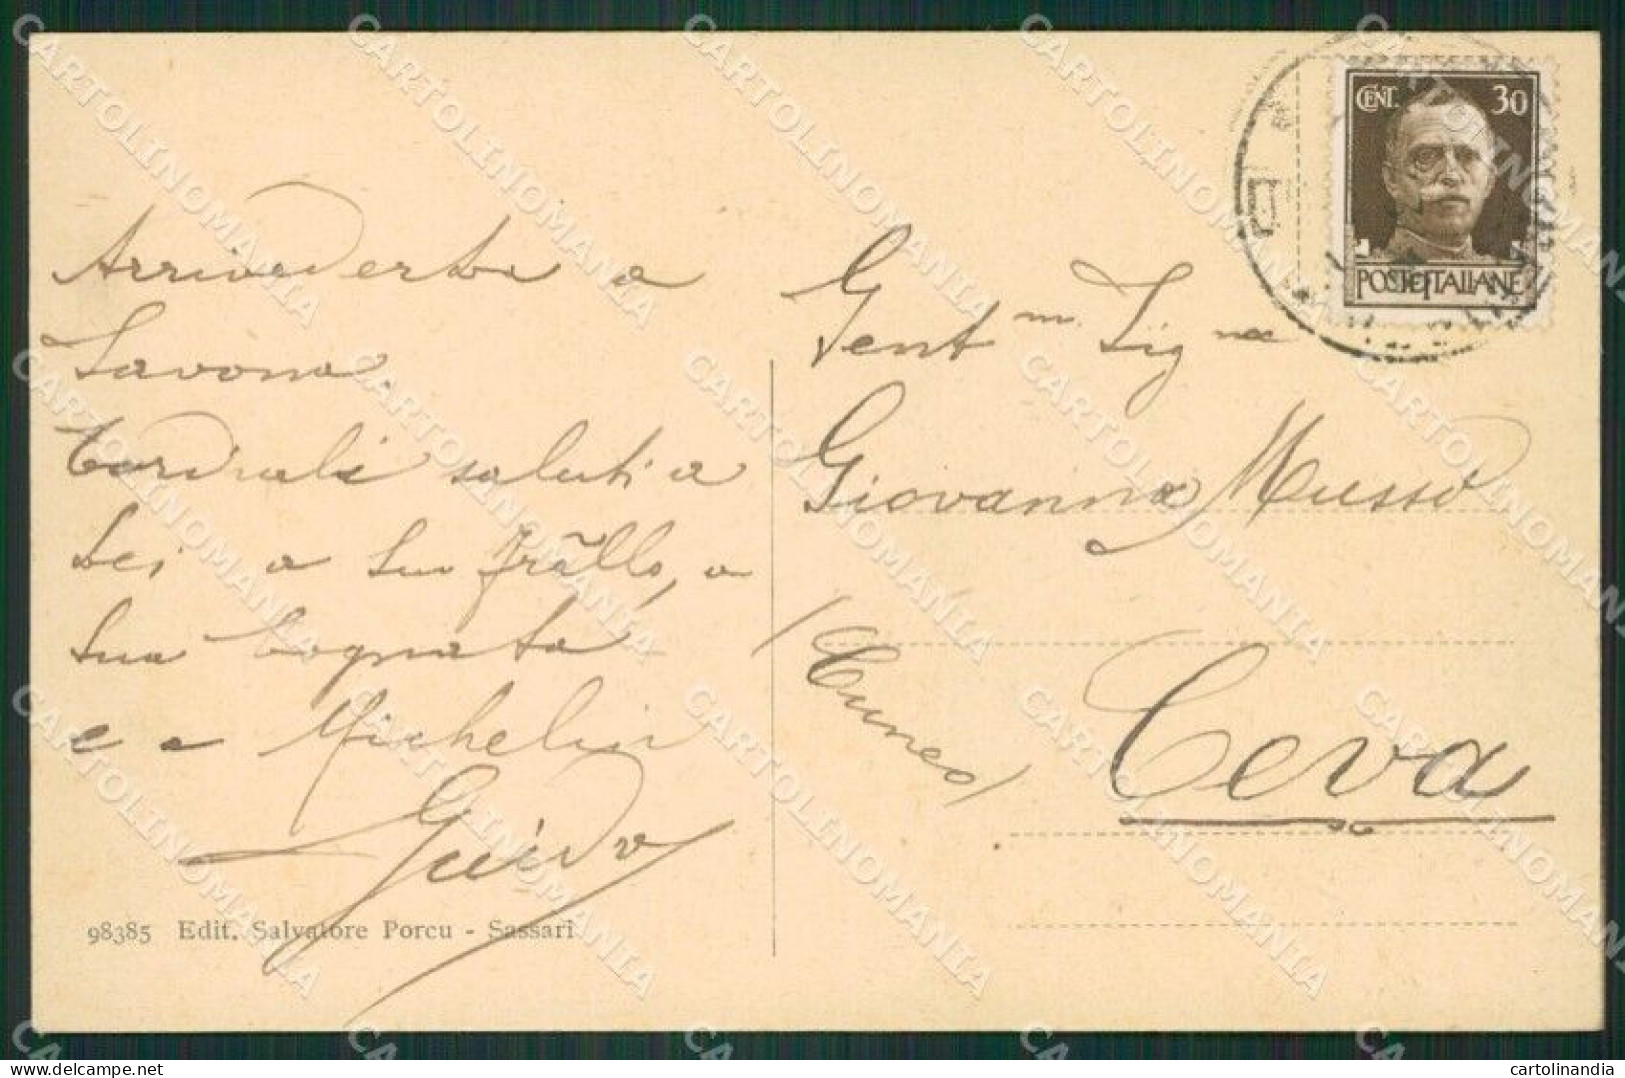 Arrivederla a
Savona
Cordiali saluti a
Lei a suo frãllo, a
sua cognata
e a Michelin
Guido
98385 Edit. Salvatore Porcu - Sassari
Gent m. Sig na
Giovanna Musso
(Cuneo)
Ceva
CENT. 30
POSTE ITALIANE
CARTOLINOMANIA
cartolinandia